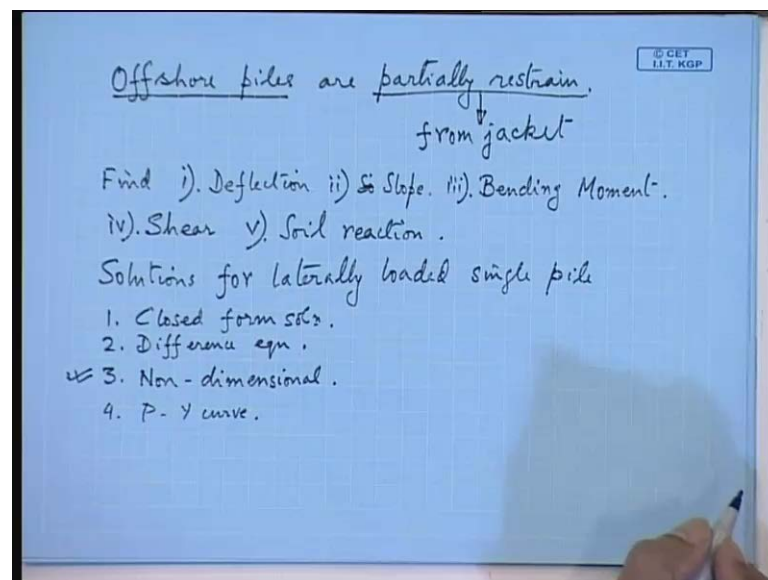 © CET
I.I.T. KGP
Offshore piles are partially restrain.
from jacket
Find i). Deflection ii) So Slope. iii). Bending Moment.
iv). Shear v). Soil reaction.
Solutions for laterally loaded single pile
1. Closed form soln.
2. Difference eqn.
3. Non-dimensional.
4. P-Y curve.